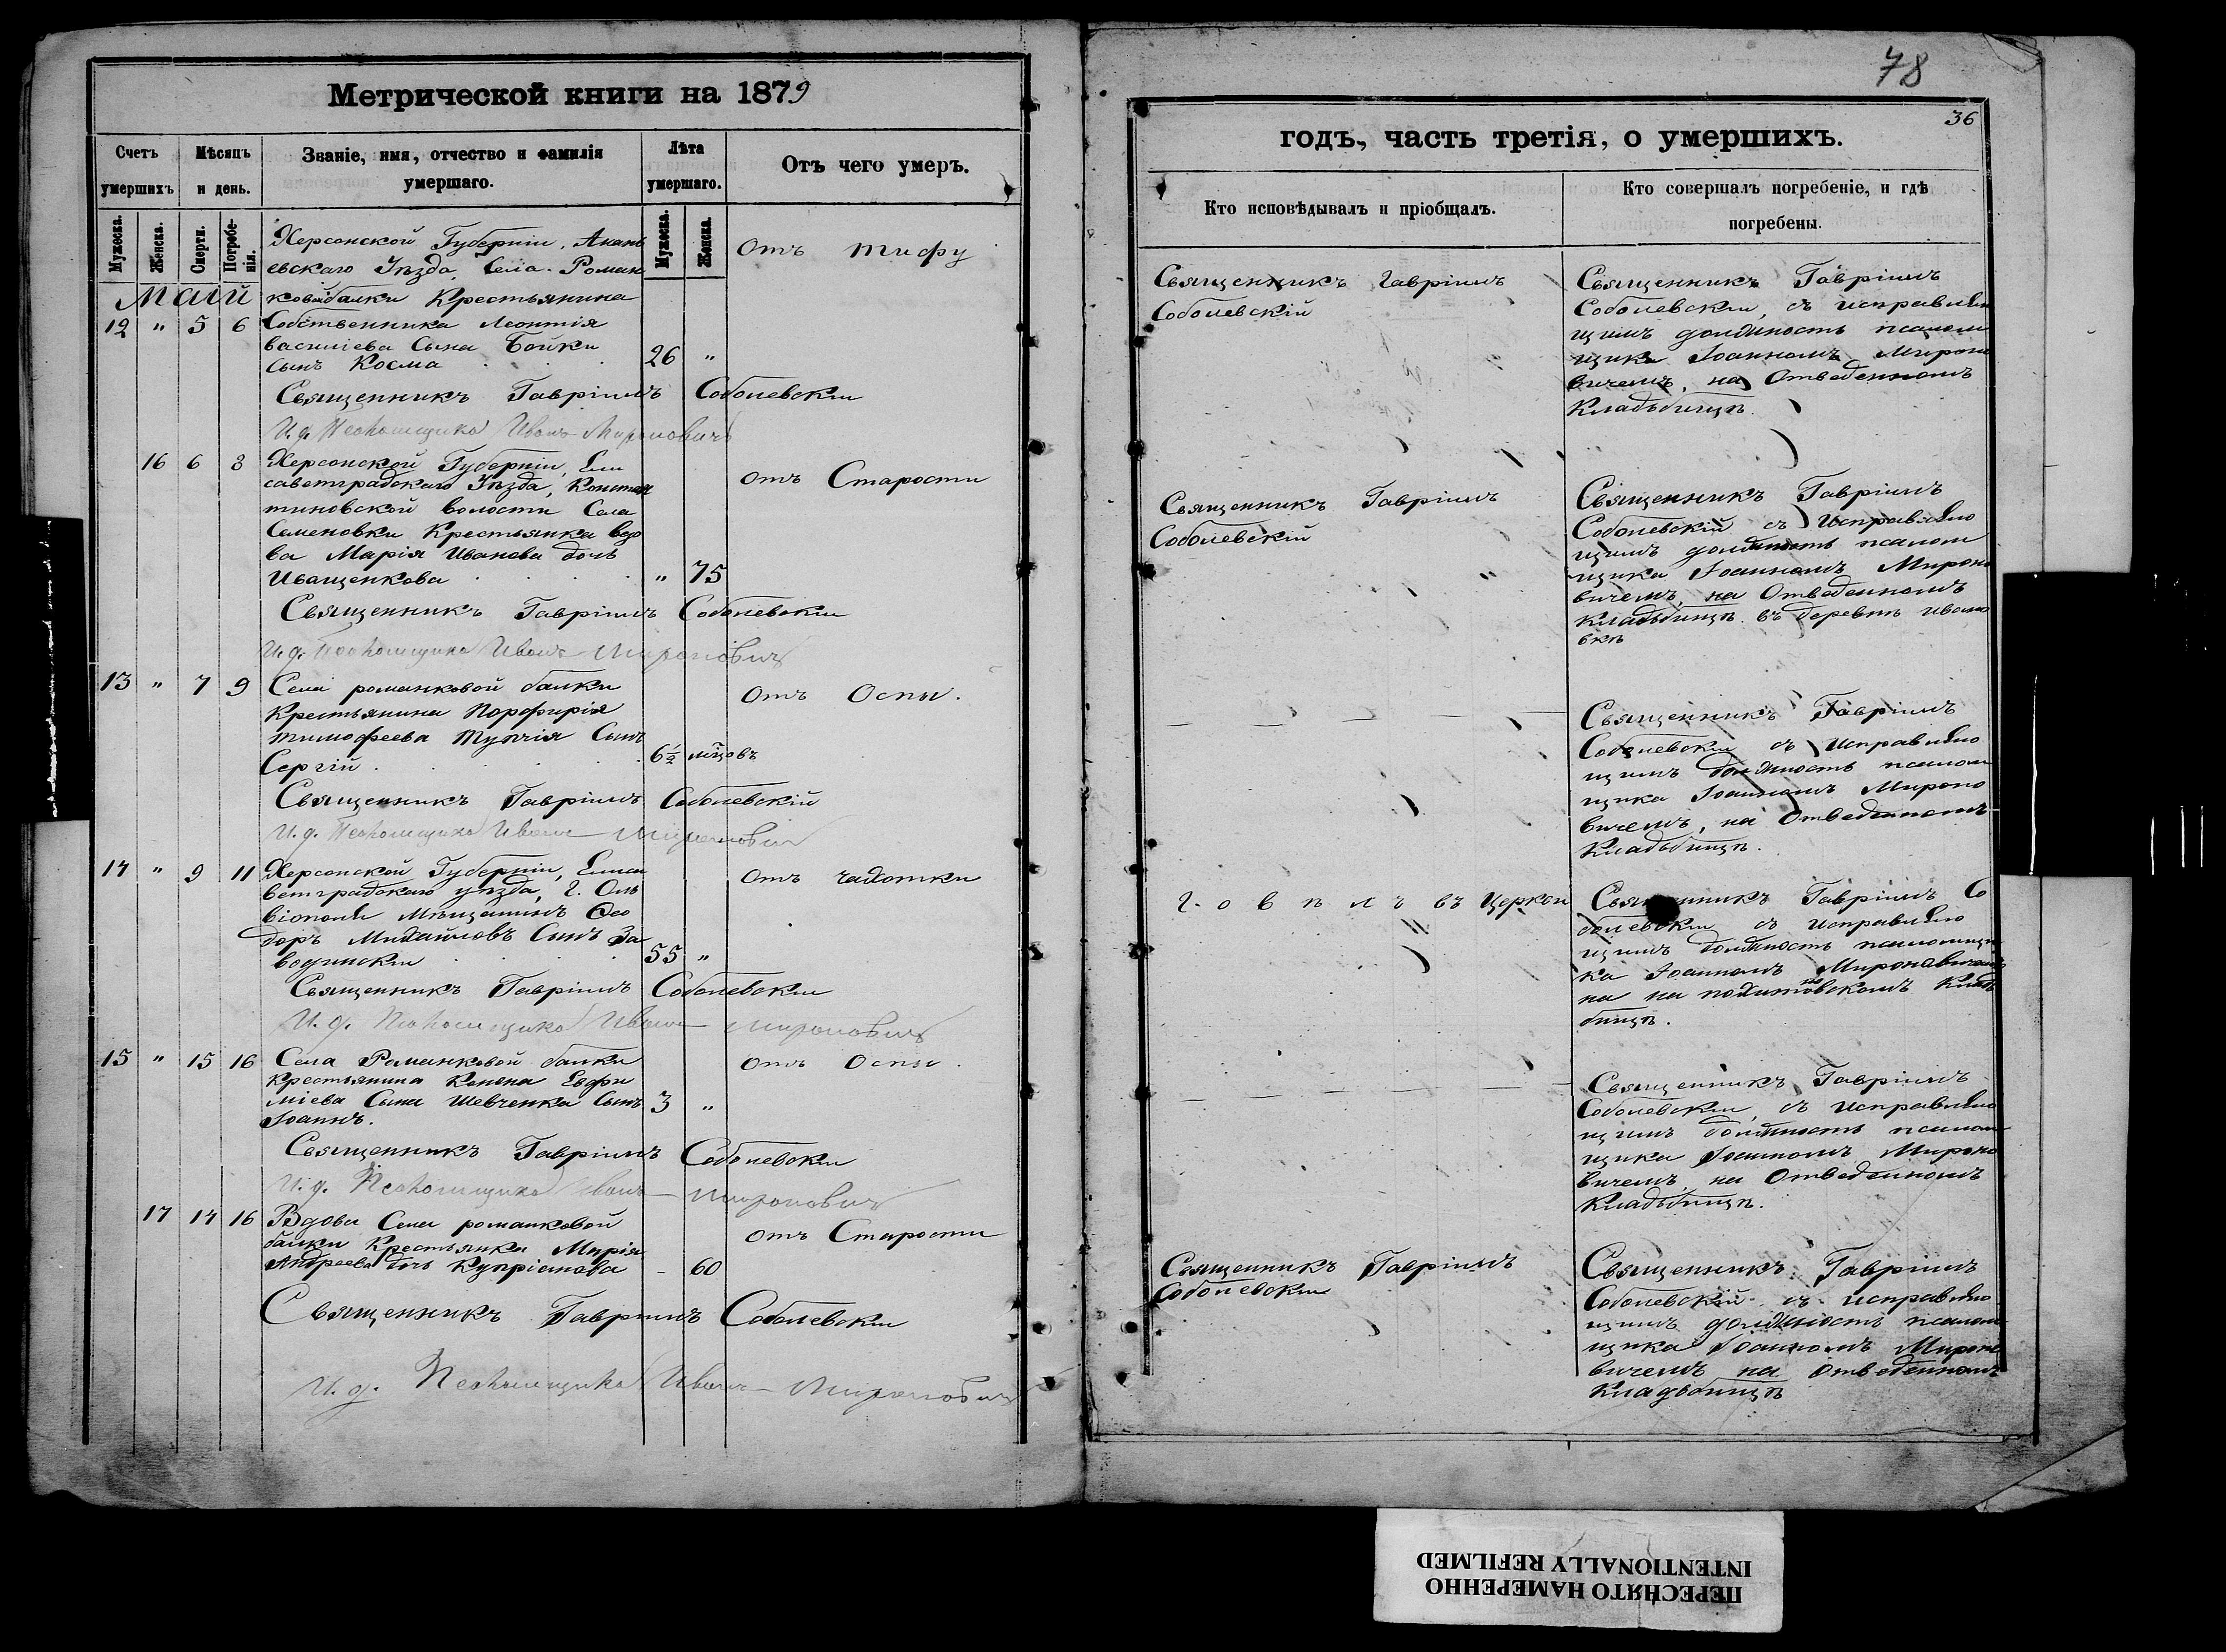 Метрической книги на 1879
Счетъ умершихъ
Мѣсяцъ и день.
Званіе, имя, отчество и фамилія умершаго.
Лѣта умершаго.
Отъ чего умеръ.
Мужеска. Женска. Смерти. Погребенія. Мужеска. Женска.
Май
Херсонской Губерніи, Анань
евскаго Уѣзда, Села Роман
ковойбалки Крестьянина
12 " 5 6 Собственника Леонтія
василіева Сына Бойки
сынъ Косма 26 "
Отъ тифу
Священникъ Гавріилъ Соболевскій
И. д. Псаломщика Иванъ Мироновичъ
16 6 8 Херсонской Губерніи, Ели
саветградскаго Уѣзда, Констан
тиновской волости Села
Семеновки Крестьянка вдо
ва Марія Иванова дочь
Иващенкова " 75
отъ Старости
Священникъ Гавріилъ Соболевскій
И. д. Псаломщика Иванъ Мироновичъ
13 " 7 9 Села романковой балки
Крестьянина Порфирія
тимофеева Сынъ
Сергій 6½ мцовъ
отъ Оспы.
Священникъ Гавріилъ Соболевскій
И. д. Псаломщика Иванъ Мироновичъ
14 " 9 11 Херсонской Губерніи, Елиса
ветградскаго уѣзда, Г. Оль
віополя Мѣщанинъ Ѳео
доръ Михайловъ Сынъ За
водинскій 55 "
отъ чахотки
Священникъ Гавріилъ Соболевскій
И. д. Псаломщика Иванъ Мироновичъ
15 " 15 16 Села Романковой балки
Крестьянина Конона Евфи
міева Сына Шевченка Сынъ 3 "
Іоаннъ.
отъ Оспы.
Священникъ Гавріилъ Соболевскій
И. д. Псаломщика Иванъ Мироновичъ
17 14 16 Вдова Села романковой
балки Крестьянка Марія
Андреева дочь Купріянова - 60
отъ Старости
Священникъ Гавріилъ Соболевскій
И. д. Псаломщика Иванъ Мироновичъ
78
36
годъ, часть третія, о умершихъ.
Кто исповѣдывалъ и пріобщалъ.
Кто совершалъ погребеніе, и гдѣ погребены.
Священникъ Гавріилъ
Соболевскій
Священникъ Гавріилъ
Соболевскій, съ исправляю
щимъ должность псалом
щика Іоанномъ Мироно
вичемъ, на Отведенномъ
Кладбищѣ.
Священникъ Гавріилъ
Соболевскій
Священникъ Гавріилъ
Соболевскій съ Исправляю
щимъ должность псалом
щика Іоанномъ Мироно
вичемъ, на Отведенномъ
Кладбищѣ въ деревнѣ ивано
вкѣ
Священникъ Гавріилъ
Соболевскій съ Исправляю
щимъ должность псалом
щика Іоанномъ Мироно
вичемъ, на Отведенномъ
Кладбищѣ.
Говѣлъ въ Церкви
Священникъ Гавріилъ Со
болевскій съ исправляю
щимъ должность псаломщи
ка Іоанномъ Мироновичемъ
Священникъ Гавріилъ
Соболевскій, съ исправляю
щимъ должность псалом
щика Іоанномъ Мироно
вичемъ, на Отведенномъ
Кладбищѣ.
Священникъ Гавріилъ
Соболевскій
Священникъ Гавріилъ
Соболевскій съ исправляю
щимъ должность псалом
щика Іоанномъ Мироно
вичемъ на отведенномъ
Кладбищѣ
ПЕРЕСНЯТО НАМЕРЕННО
INTENTIONALLY REFILMED